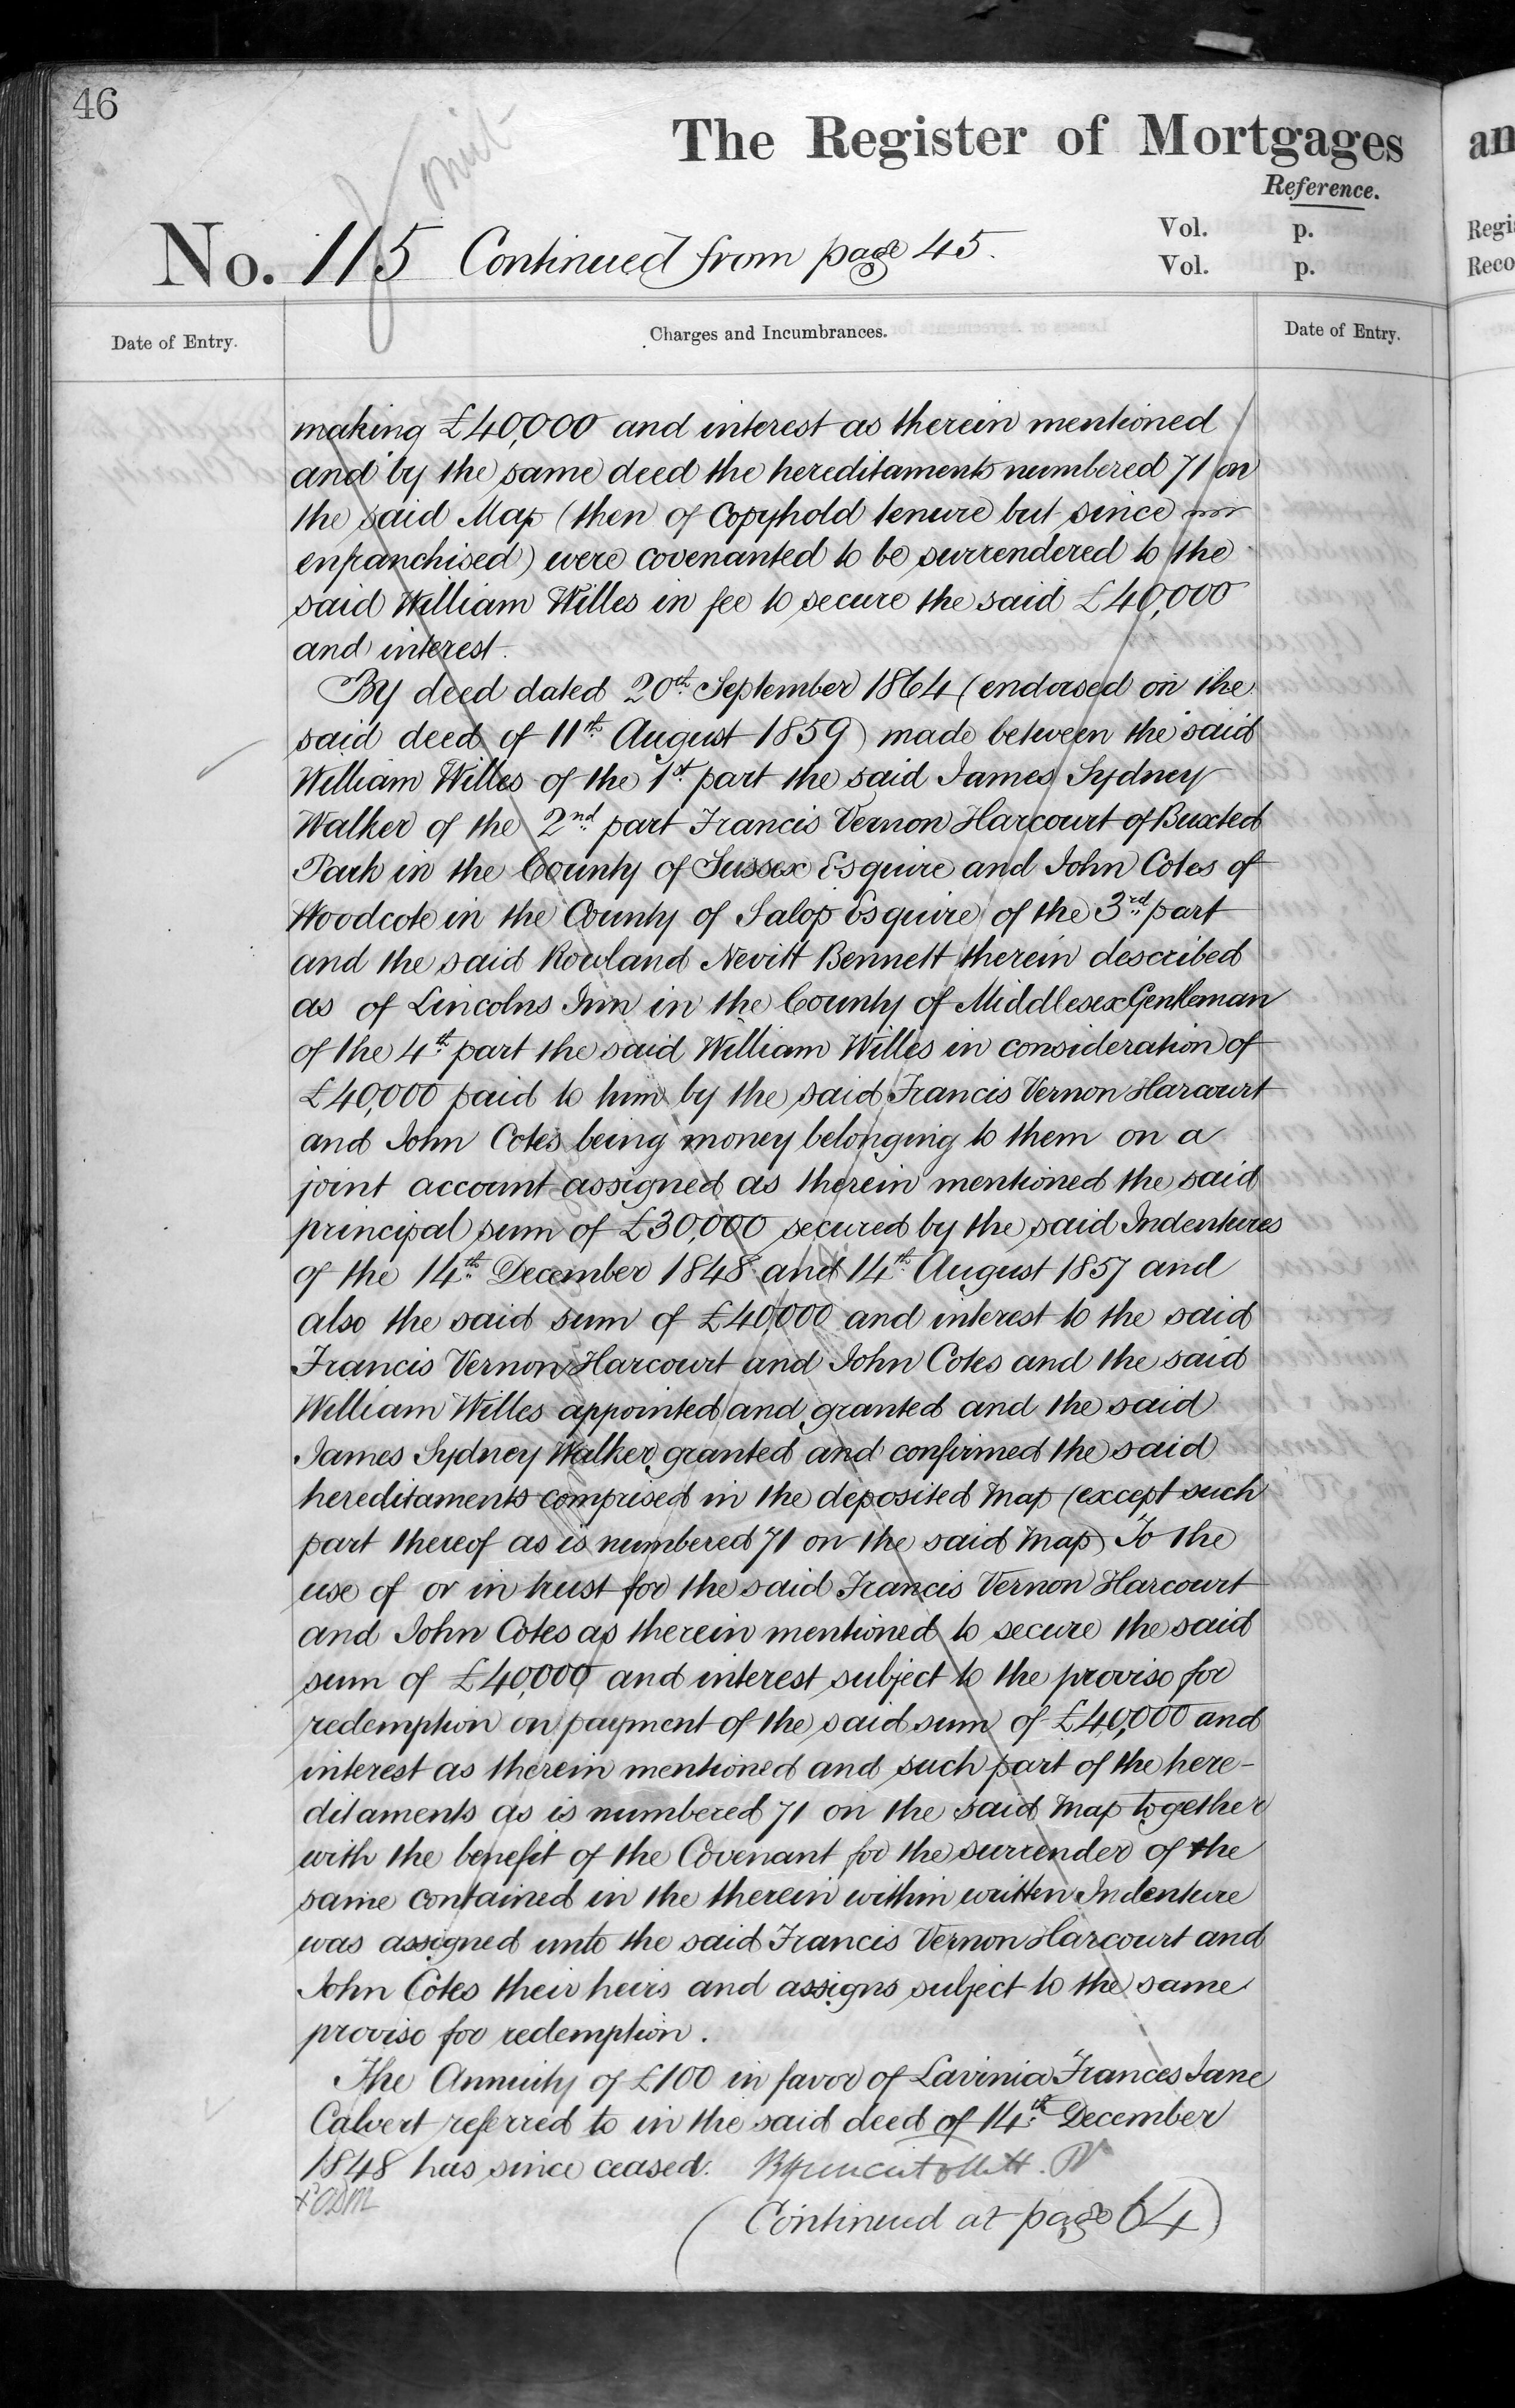 46
omit
The Register of Mortgages
Reference.
No. 115 Continued from page 45.
Vol. p.
Vol. p.
Date of Entry.
Charges and Incumbrances.
Date of Entry.
making £40,000 and interest as therein mentioned
and by the same deed the hereditaments numbered 71 on
the said Map (then of Copyhold tenure but since
enfranchised) were covenanted to be surrendered to the
said William Willes in fee to secure the said £40,000
and interest.
By deed dated 20th September 1864 (endorsed on the
said deed of 11th August 1859) made between the said
William Willes of the 1st part the said James Sydney
Walker of the 2nd part Francis Vernon Harcourt of Buxted
Park in the County of Sussex Esquire and John Cotes of
Woodcote in the County of Salop Esquire of the 3rd part
and the said Rowland Nevitt Bennett therein described
as of Lincolns Inn in the County of Middlesex Gentleman
of the 4th part the said William Willes in consideration of
£40,000 paid to him by the said Francis Vernon Harcourt
and John Cotes being money belonging to them on a
joint account assigned as therein mentioned the said
principal sum of £30,000 secured by the said Indentures
of the 14th December 1848 and 14th August 1857 and
also the said sum of £40,000 and interest to the said
Francis Vernon Harcourt and John Cotes and the said
William Willes appointed and granted and the said
James Sydney Walker granted and confirmed the said
hereditaments comprised in the deposited Map (except such
part thereof as is numbered 71 on the said Map) To the
use of or in trust for the said Francis Vernon Harcourt
and John Cotes as therein mentioned to secure the said
sum of £40,000 and interest subject to the proviso for
redemption on payment of the said sum of £40,000 and
interest as therein mentioned and such part of the here-
ditaments as is numbered 71 on the said Map together
with the benefit of the Covenant for the surrender of the
same contained in the therein within written Indenture
was assigned unto the said Francis Vernon Harcourt and
John Cotes their heirs and assigns subject to the same
proviso for redemption.
The Annuity of £100 in favor of Lavinia Frances Jane
Calvert referred to in the said deed of 14th December
1848 has since ceased.
(Continued at page 64)
an
Regi
Reco